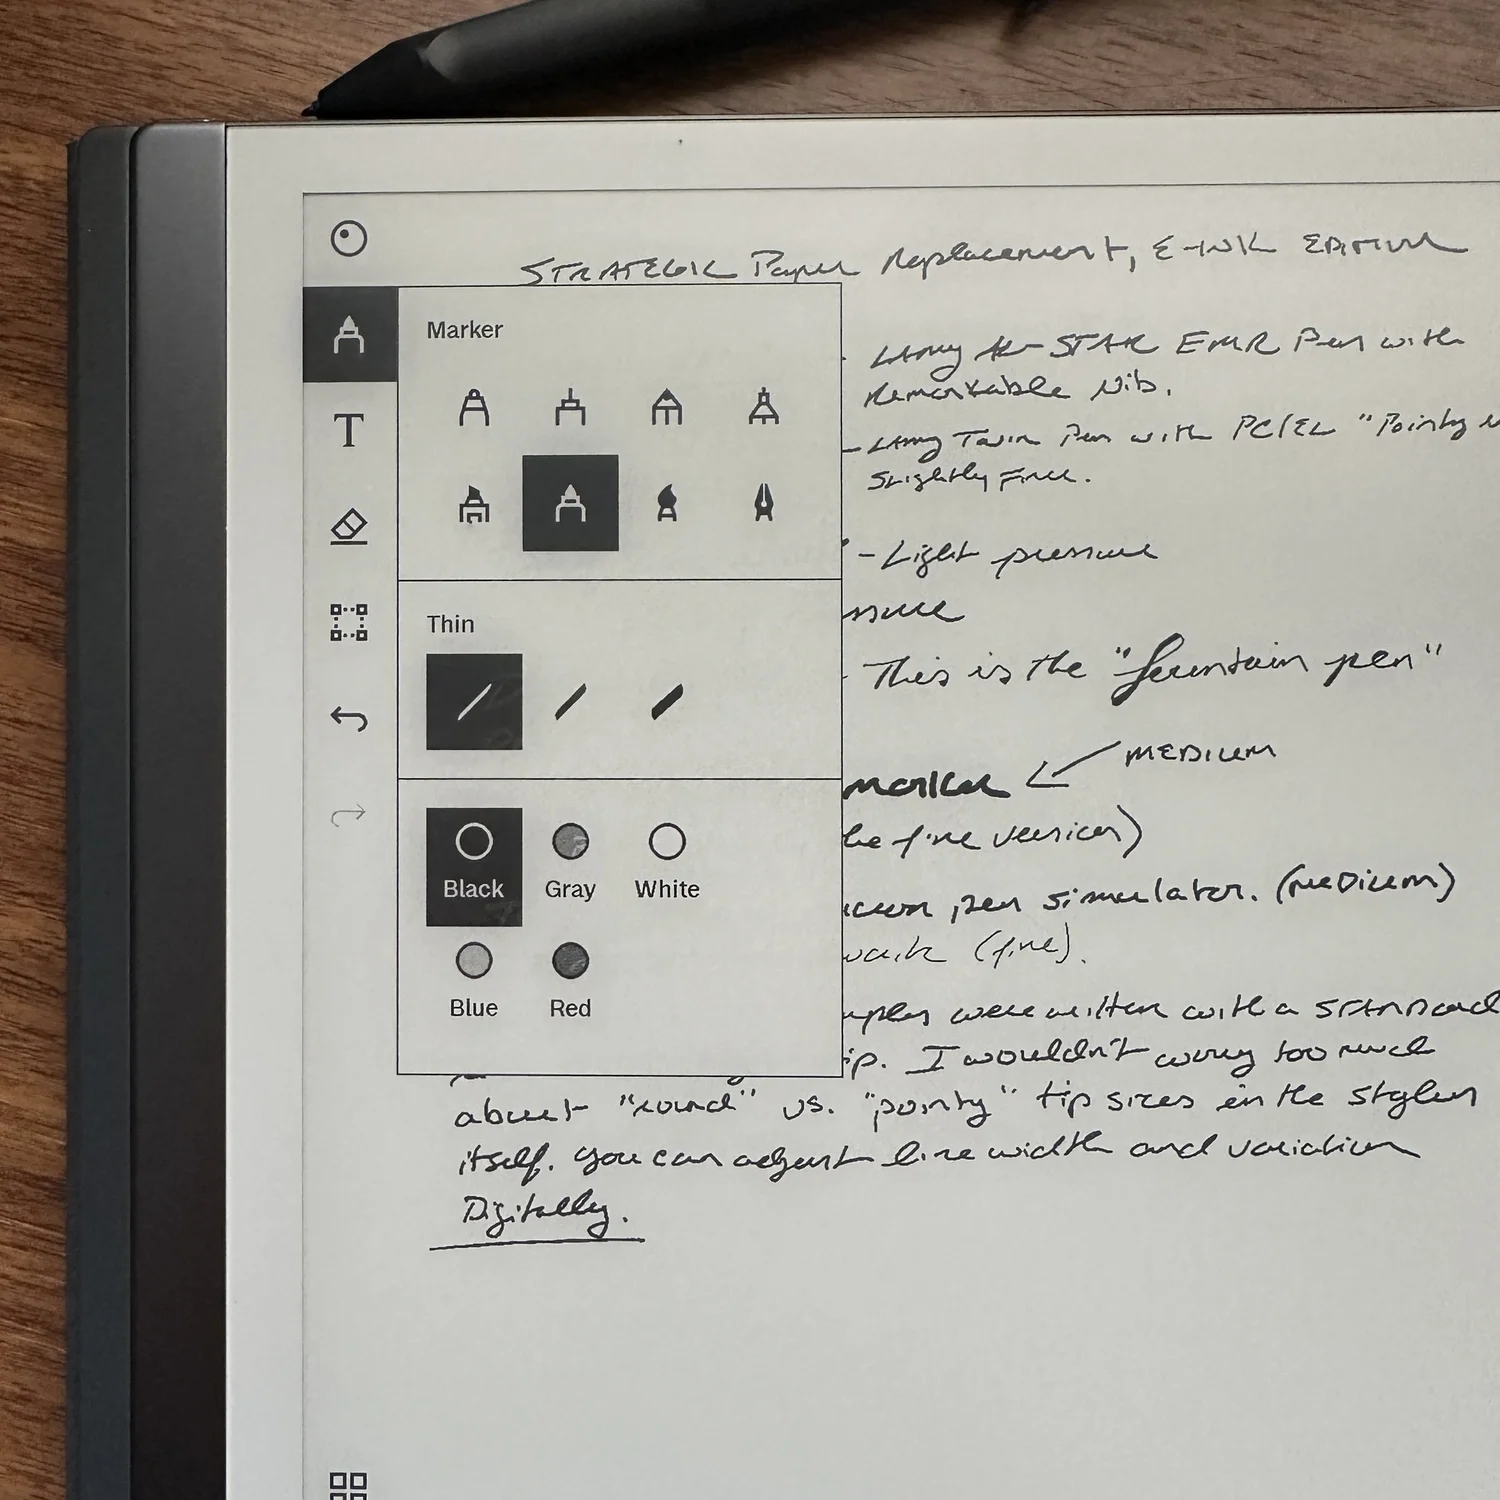 STRATEGIC Paper Replacement, E-INK EDITION
Marker
- LAMY AL-STAR EMR Pen with
Remarkable Nib.
T
- LAMY Twin Pen with PC/EL "Pointy
Slightly Finer.
- Light pressure
Thin
This is the "fountain pen"
marker
MEDIUM
the fine version)
Black
Gray
White
pen simulator. (MEDIUM)
(fine).
Blue
Red
were written with a STANDARD
tip. I wouldn't worry too much
about "round" vs. "pointy" tip sizes in the stylus
itself. You can adjust line width and variation
Digitally.